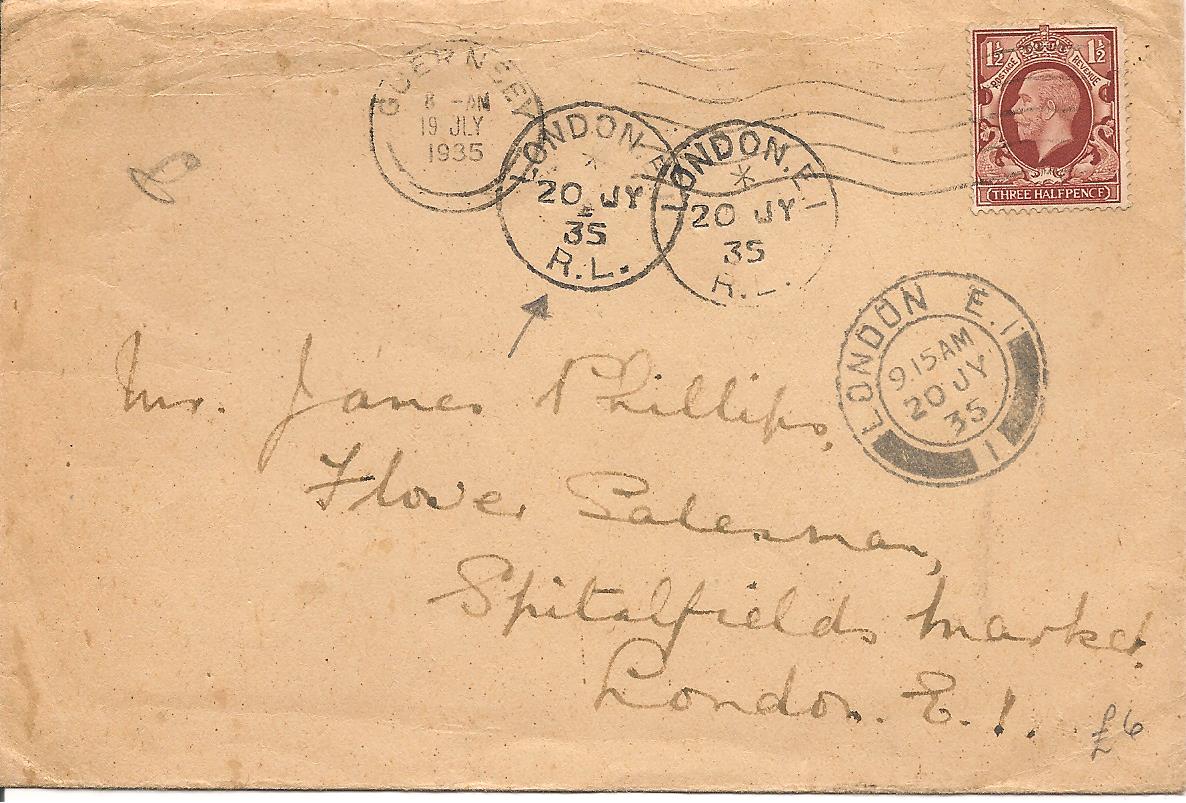 GUERNSEY
8 -AM
19 JLY
1935
LONDON.E.1
20 JY
35
R.L.
LONDON.E.1
20 JY
35
R.L.
1½ 1½
POSTAGE REVENUE
THREE HALFPENCE
LONDON E.1
9.15AM
20 JY
35
1
Mr. James Phillips,
Flower Salesman,
Spitalfields Market
London. E.1.
£6